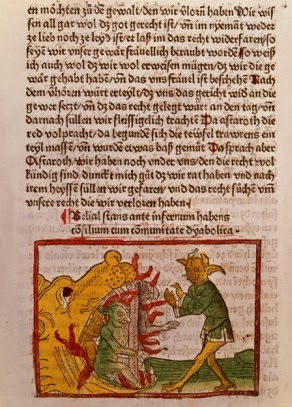 en möchten zu dẽ gewalt/ den wir v̈lorñ haben Wir wis
sen all gar wol dz got gerecht ist/ vñ im nyemãt weder
ze lieb noch ze leyd ist/ er laß im das recht widerfarẽ/ so
seyẽ wir vnser gewär fräuelich beraubt wordẽ So weiß
ich auch wol dz wir wol erweisen mügẽ/ dz wir die ge
wär gehabt habẽ/ vñ das vns fräuel ist beschehẽ Nach
dem v̈hörẽ würt erteylt/ dz vns das gericht wid̾ an die
gewer seczt/ vñ dz das recht gelegt wär̃ an den tag/ vñ
darnach süllen wir fleissigklich trachtẽ Da astaroth die
red volpracht/ da begunde sich die teüfel traurens ein
teyl massẽ/ vñ wurdẽ etwas baß gemůt Da sprach aber
Astaroth/ wir haben noch vnder vns/ den die recht vol
kündig sind/ dunckt mich gůt dz wir rat haben/ vnd nach
irem heyssẽ süllen wir gefarẽ/ vnd das recht sůchẽ vm̃
vnsere recht die wir verlorẽ haben
Belial stans ante infernum habens
cõsilium cum cõmunitate dyabolica